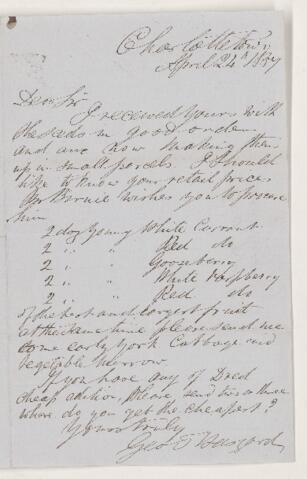 Charlottetown
April 24th 1857
Dear Sir
I received yours with
the seeds in good order
and are now making them
up in small parcels. I should
like to know your retail prices
Mr Birnie wishes you to procure
him
2 doz young White Currant
2 " " Red do
2 " " Gooseberry
2 " " White Raspberry
2 " " Red do
of the best and largest fruit
at the same time please send me
some early York Cabbage and
vegetable marrow
If you have any of Dred
cheap edition, please send two or three
where do you get the cheapest?
Yours truly
Geo. T. Haszard